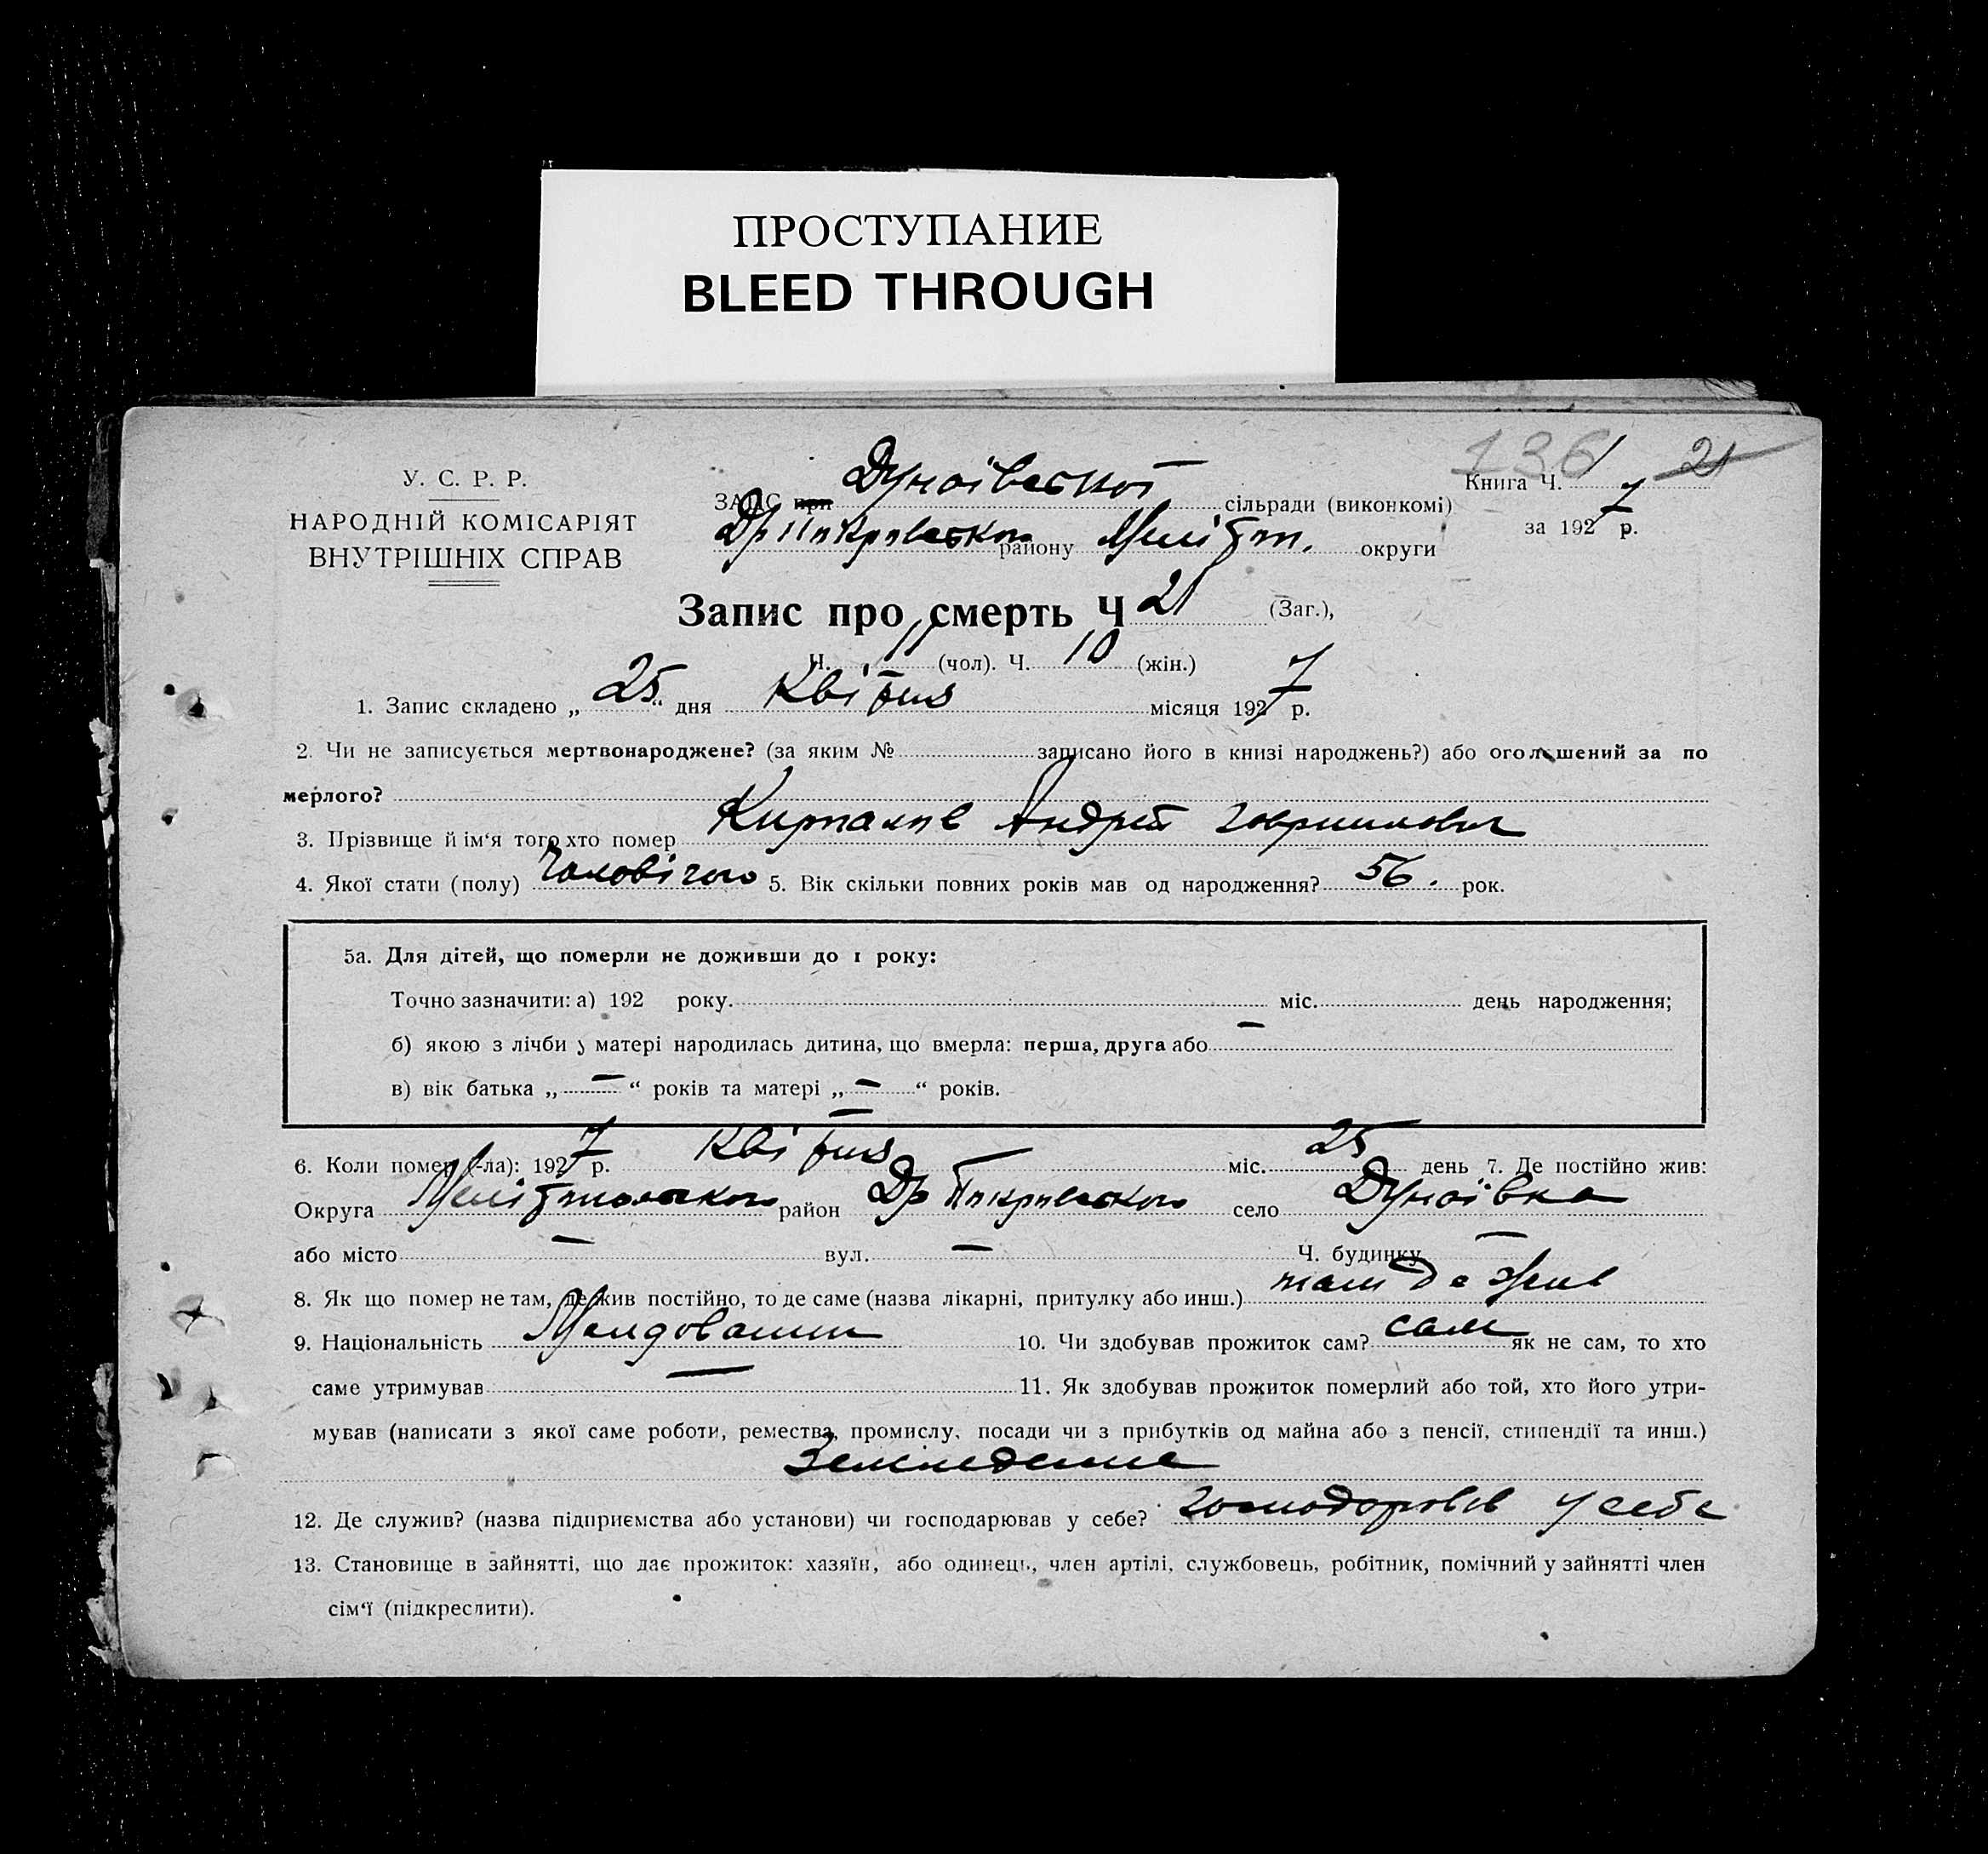 ПРОСТУПАНИЕ
BLEED THROUGH
136 21
У. С. Р. Р.
НАРОДНІЙ КОМІСАРІЯТ
ВНУТРІШНІХ СПРАВ
Книга Ч. 1
за 1927 р.
ЗАГС при Дунаівської сільради (виконкомі)
району Меліт. округи
Запис про смерть Ч 21 (Заг.),
Ч. 11 (чол). Ч. 10 (жін.)
1. Запис складено „ 25 “ дня Квітня місяця 1927 р.
2. Чи не записується мертвонароджене? (за яким № записано його в книзі народжень?) або оголошений за по
мерлого?
3. Прізвище й ім‘я того хто помер Андрей Гаврилович
4. Якої стати (полу) Чоловічого 5. Вік скільки повних років мав од народження? 56. рок.
5а. Для дітей, що померли не доживши до 1 року:
Точно зазначити: а) 192 року. міс. день народження;
б) якою з лічби у матері народилась дитина, що вмерла: перша, друга або —
в) вік батька „ — “ років та матері „ — “ років.
6. Коли помер (-ла): 1927 р. Квітня міс. 25 день 7. Де постійно жив:
Округа Мелітопольского район Др Покровского село Дунаївка
або місто — вул. — Ч. будинку —
8. Як що помер не там, де жив постійно, то де саме (назва лікарні, притулку або инш.) там де жив
9. Національність Молдованин 10. Чи здобував прожиток сам? сам як не сам, то хто
саме утримував — 11. Як здобував прожиток померлий або той, хто його утри-
мував (написати з якої саме роботи, ремества, промислу, посади чи з прибутків од майна або з пенсії, стипендії та инш.)
12. Де служив? (назва підприємства або установи) чи господарював у себе? господарював у себе
13. Становище в зайнятті, що дає прожиток: хазяїн, або одинець, член артілі, службовець, робітник, помічний у зайнятті член
сім‘ї (підкреслити).